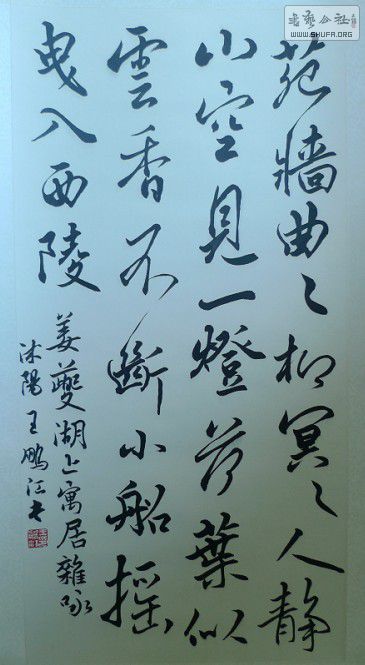 苑牆曲々柳冥々人靜
山空見一燈荷葉似
雲香不斷小船摇
曳入西陵
姜夔湖上寓居雜咏
沭陽王鵬江書
書藝公社
WWW.SHUFA.ORG